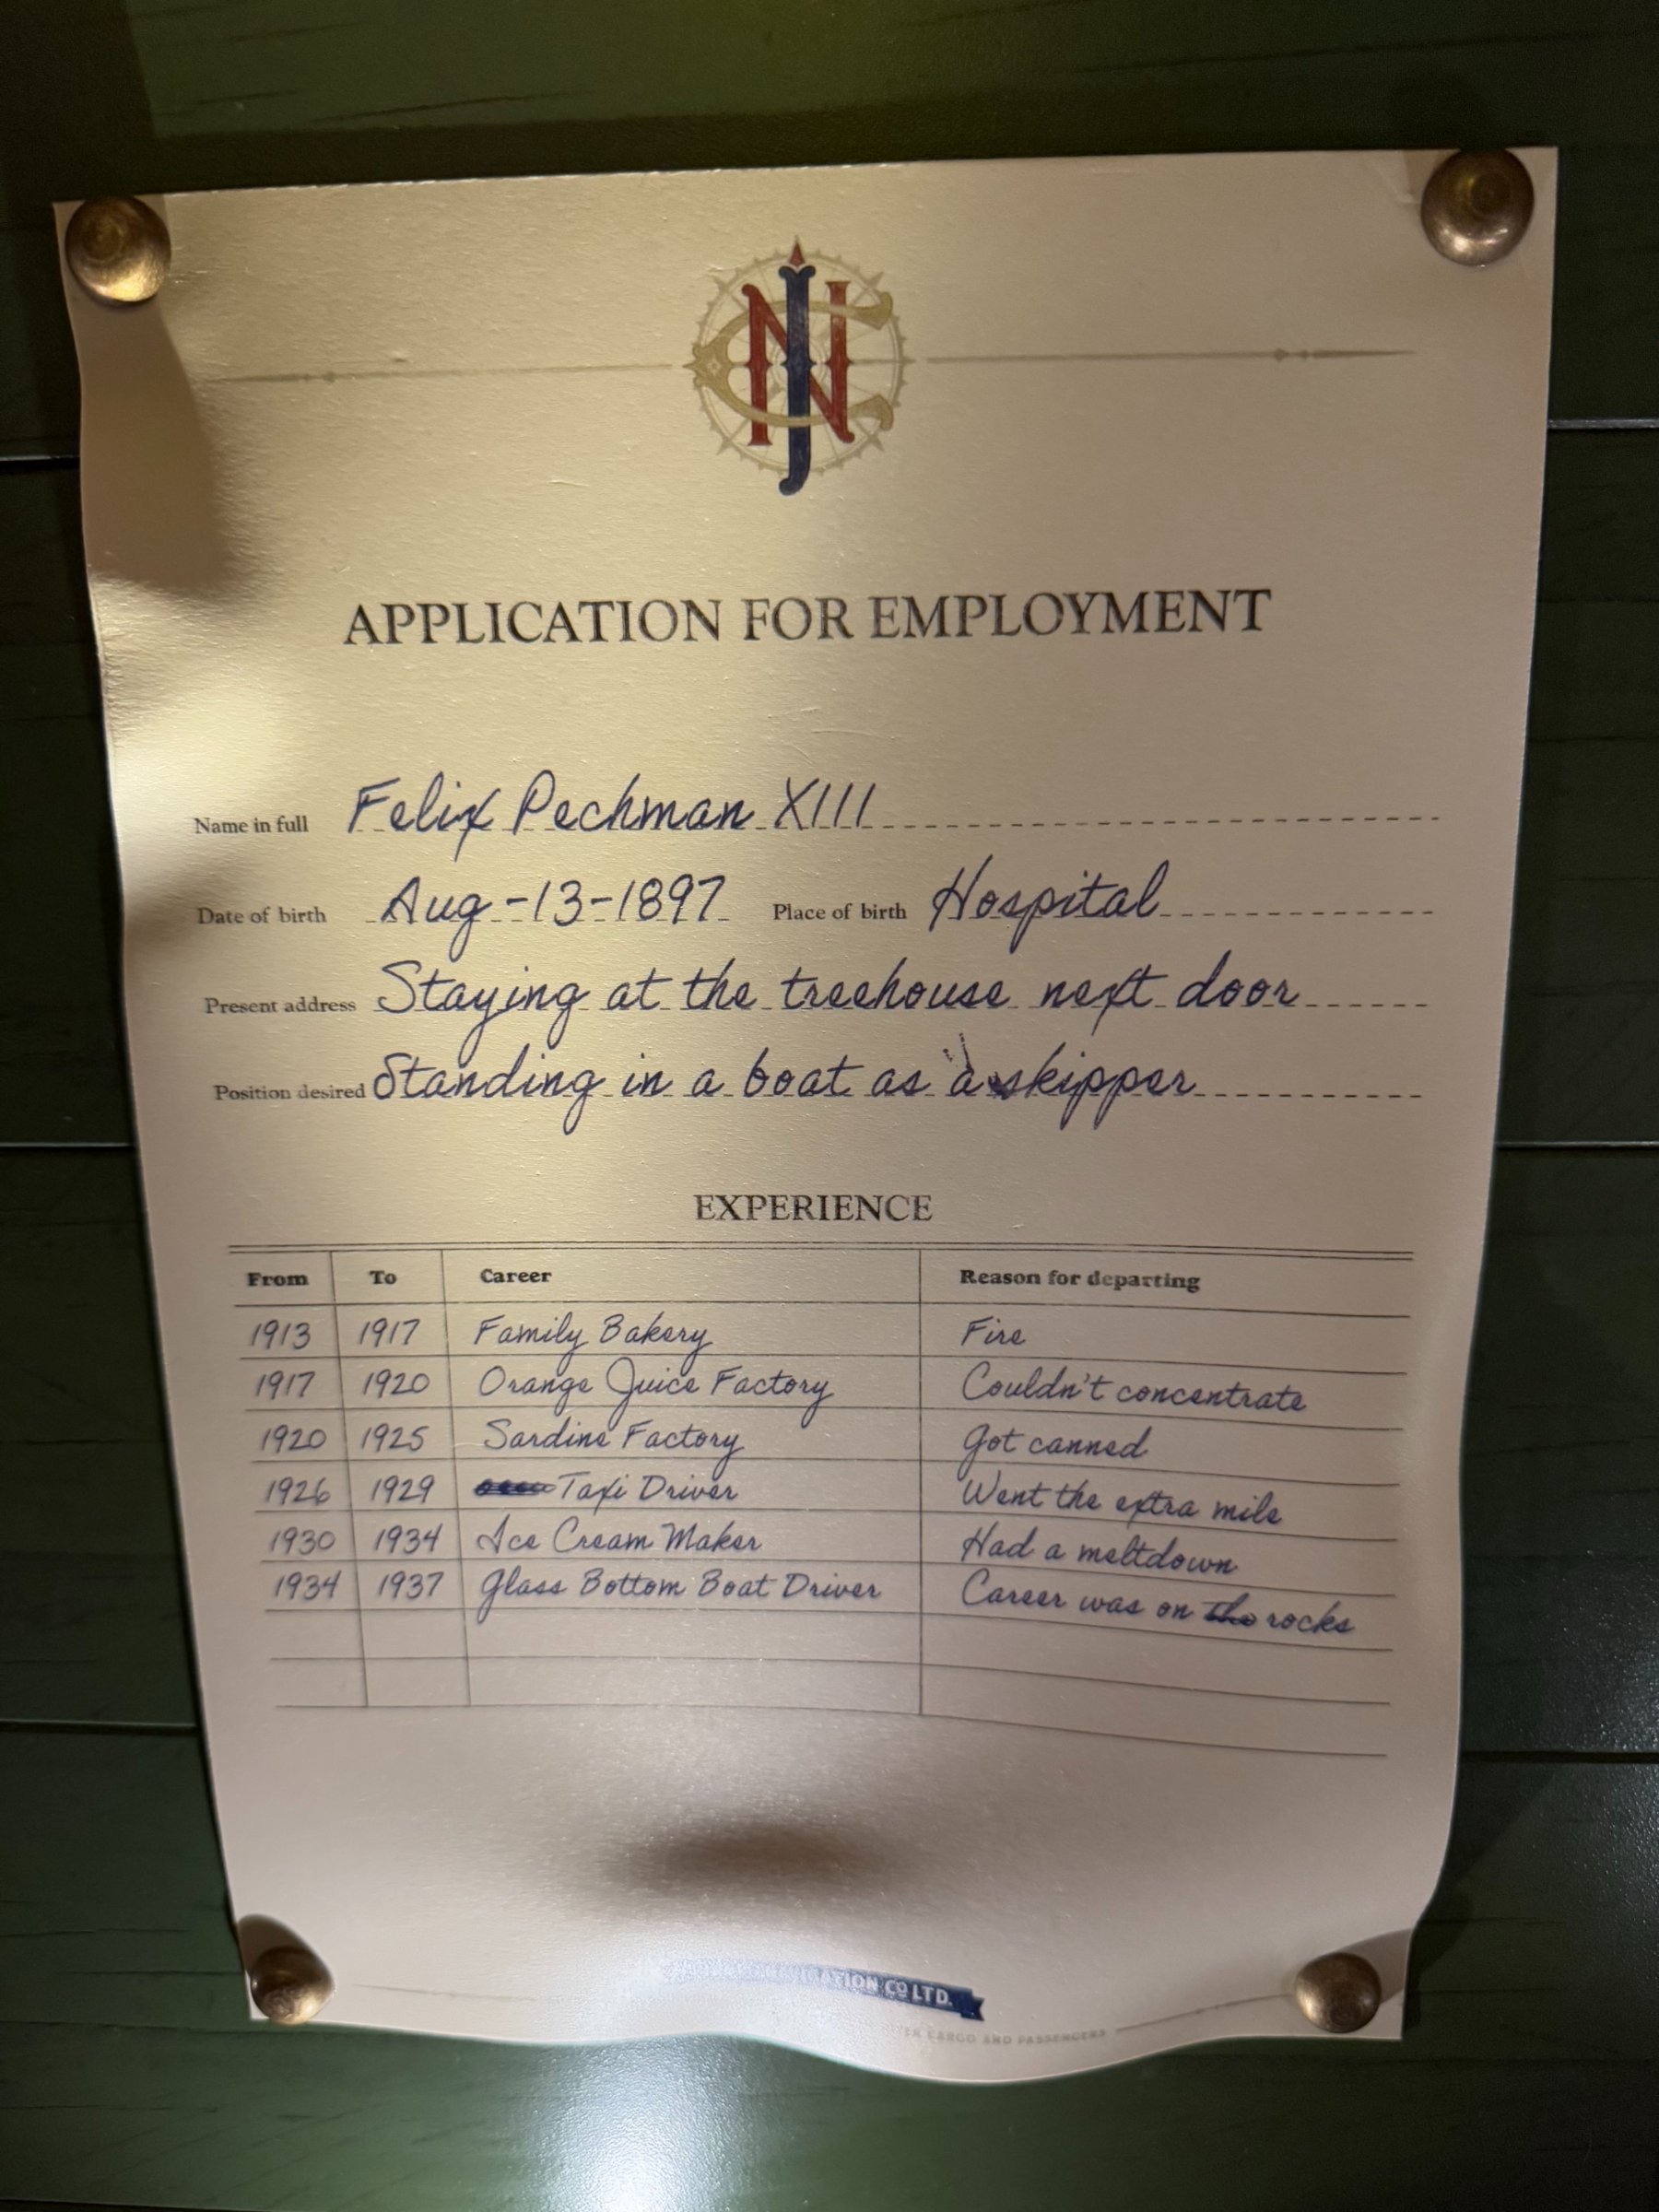 NJC
APPLICATION FOR EMPLOYMENT
Name in full Felix Pechman XIII
Date of birth Aug-13-1897 Place of birth Hospital
Present address Staying at the treehouse next door
Position desired Standing in a boat as a skipper
EXPERIENCE
From To Career Reason for departing
1913 1917 Family Bakery Fire
1917 1920 Orange Juice Factory Couldn't concentrate
1920 1925 Sardine Factory Got canned
1926 1929 Taxi Driver Went the extra mile
1930 1934 Ice Cream Maker Had a meltdown
1934 1937 Glass Bottom Boat Driver Career was on the rocks
CO LTD.
CARGO AND PASSENGERS